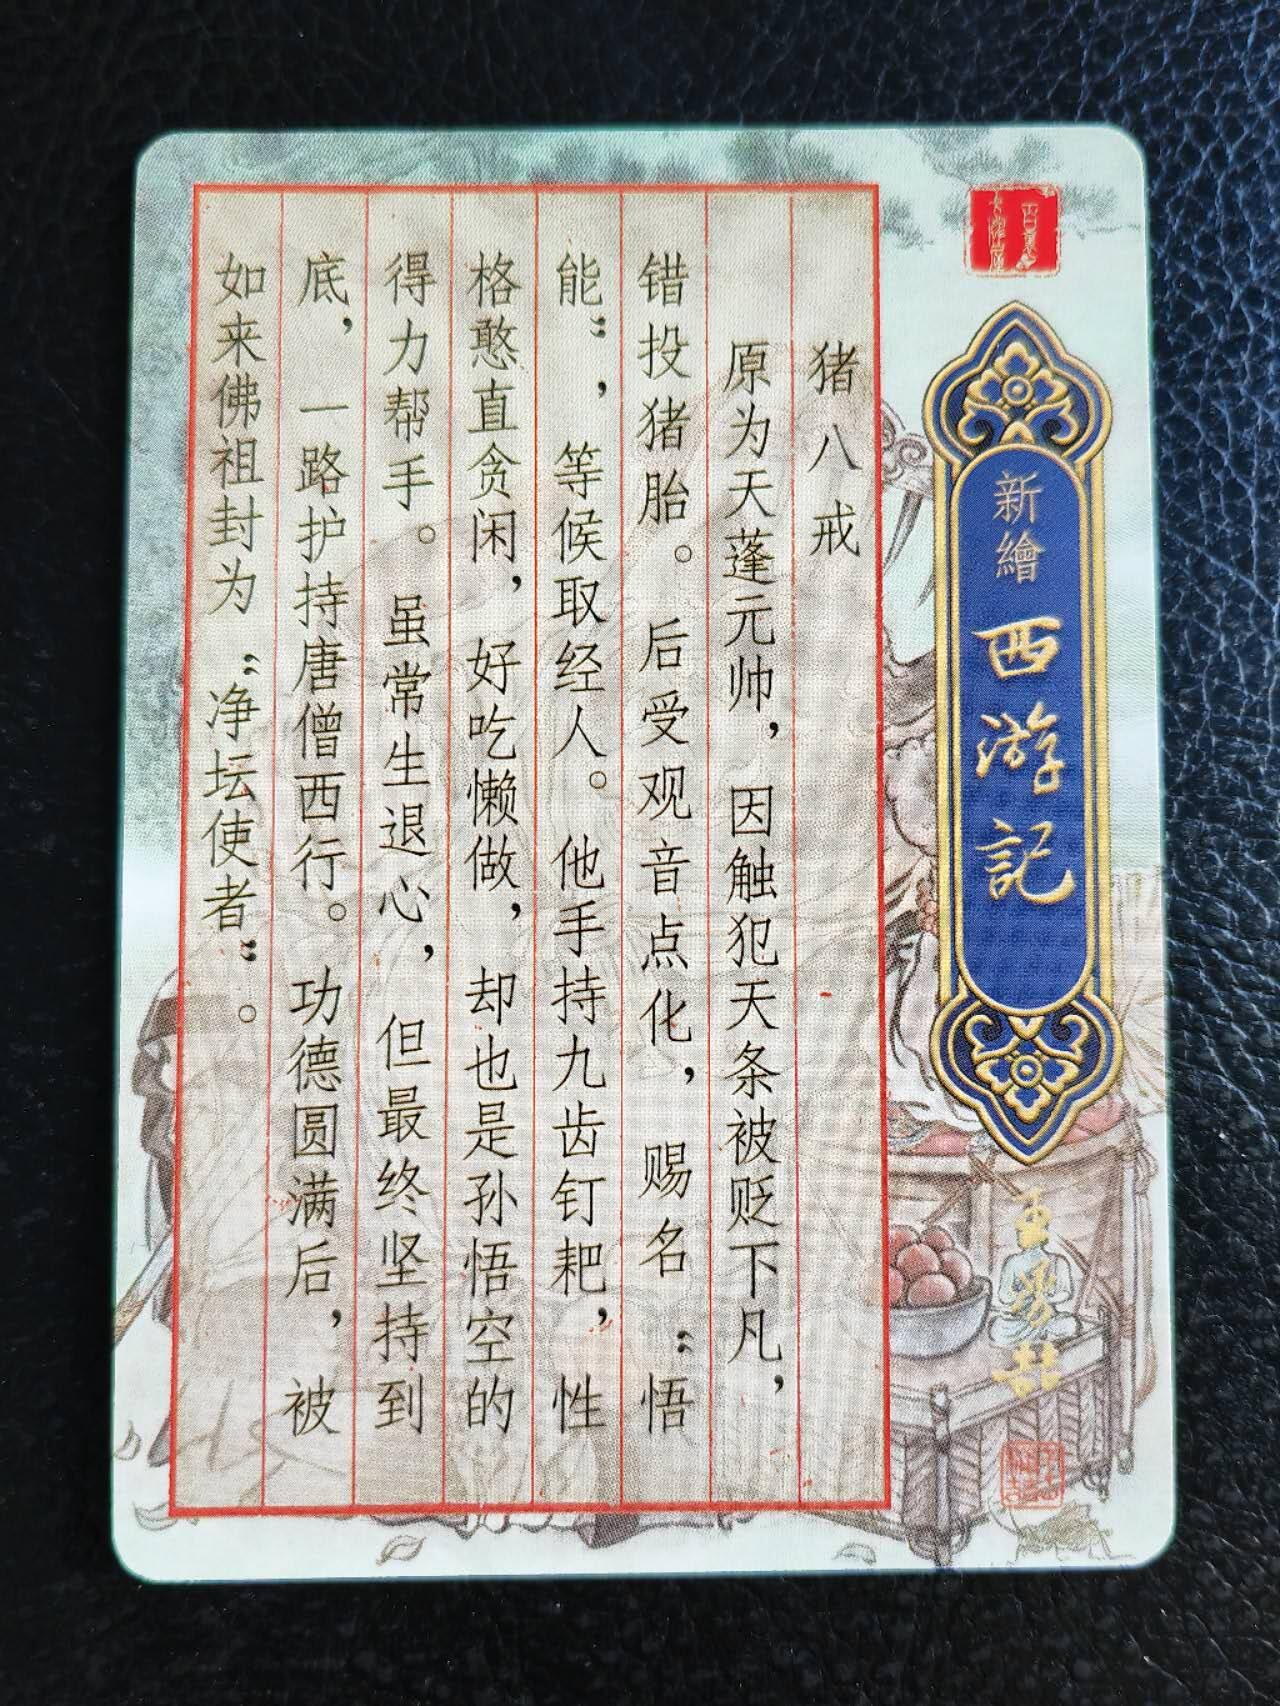 新繪西游記
猪八戒
原为天蓬元帅，因触犯天条被贬下凡，
错投猪胎。后受观音点化，赐名“悟
能”，等候取经人。他手持九齿钉耙，性
格憨直贪闲，好吃懒做，却也是孙悟空的
得力帮手。虽常生退心，但最终坚持到
底，一路护持唐僧西行。功德圆满后，被
如来佛祖封为“净坛使者”。